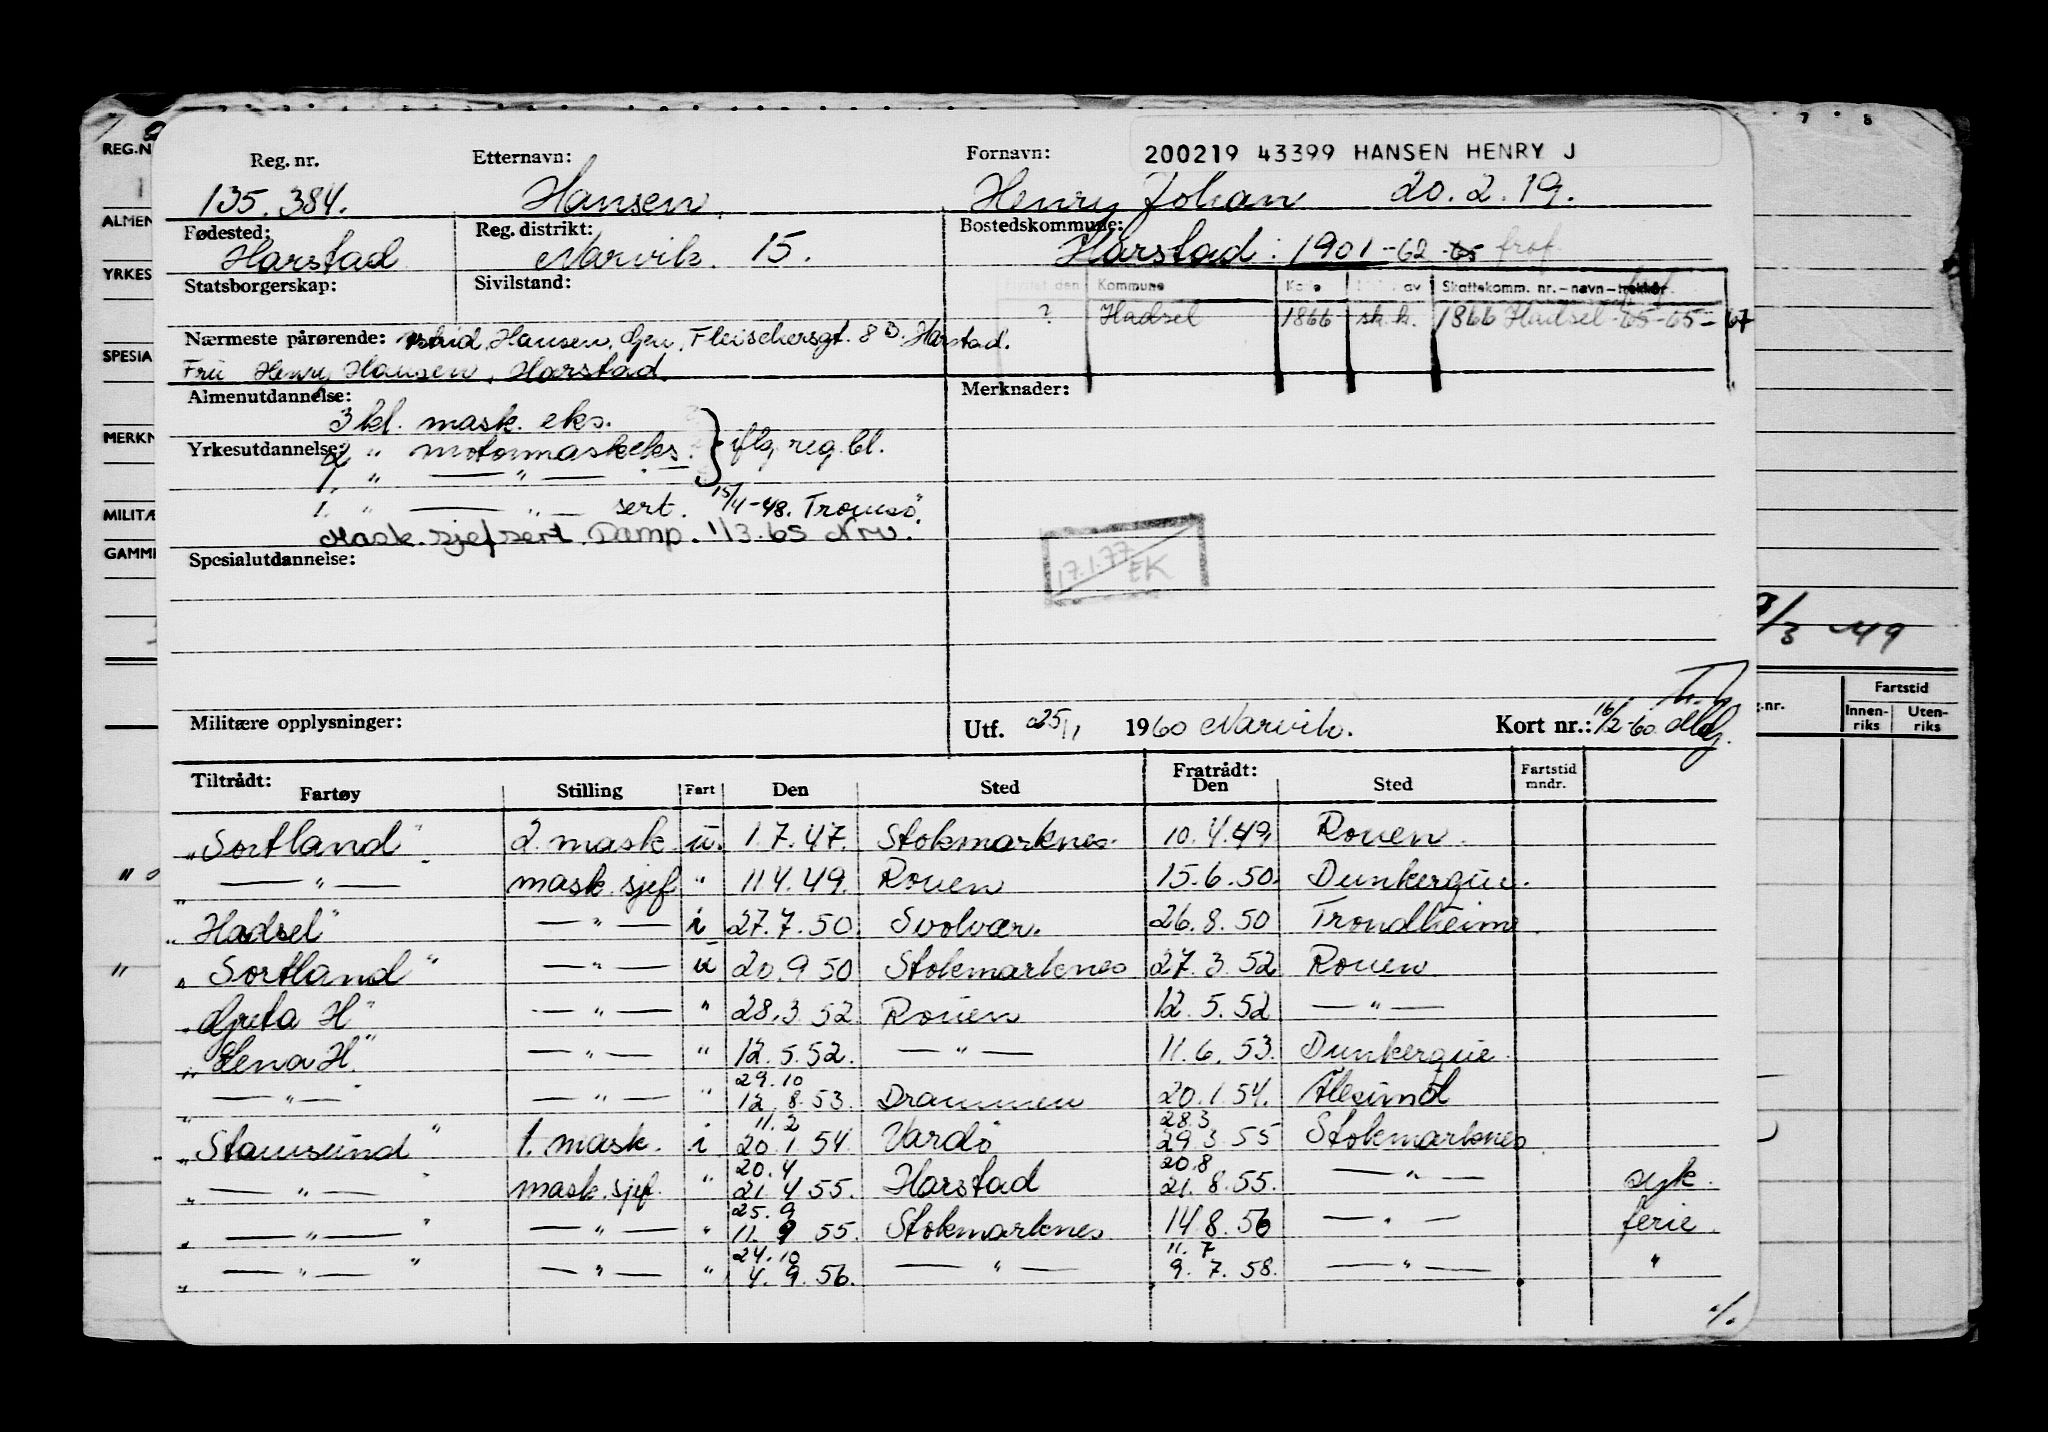 Reg. nr. Etternavn: Fornavn: 200219 43399 HANSEN HENRY J
135.384. Hansen. Henry Johan 20.2.19.
Fødested: Reg. distrikt: Bostedskommune:
Harstad Narvik. 15. Harstad : 1901 -62 -65
Statsborgerskap: Sivilstand:
Kommune av Skattekomm. nr. – navn –
? Hadsel 1866 sk.k. 1866 Hadsel -65-65-67
Nærmeste pårørende: Hansen, Fleischersgt. 8 D. Harstad.
Fru Henry Hansen, Harstad.
Almenutdannelse: Merknader:
3 kl. mask. eks.
Yrkesutdannelse: 2 " motormaskeks. } iflg. reg. bl.
1. " — " —
1. " — " — sert. 15/4-48. Tromsö.
Mask. sjefsert. Damp. 1/3-65 Nrv.
Spesialutdannelse:
17.1.77 EK
Militære opplysninger: Utf. 25/1 1960 Narvik. Kort nr.: 16/2-60
Tiltrådt: Fratrådt: Fartstid
Fartøy Stilling Fart Den Sted Den Sted mndr.
"Sortland" 2. mask u. 1.7.47. Stokmarknes. 10.4.49. Rouen.
" — " — mask. sjef " 11.4.49. Rouen 15.6.50. Dunkerque.
"Hadsel" — " — i 27.7.50. Svolvær. 26.8.50 Trondheim.
"Sortland" — " — u 20.9.50 Stokmarknes 27.3.52 Rouen
"Greta H" — " — " 28.3.52. Rouen 12.5.52 — " —
"Lena H" — " — " 12.5.52. — " — 11.6.53. Dunkerque.
29.10
" — " — — " — " 12.8.53. Drammen 20.1.54. Ålesund
11.2 28.3
"Stamsund" 1. mask. i 20.1.54. Vardö 29.3.55 Stokmarknes
20.4 20.8
" — " — mask. sjef. " 21.4.55. Harstad 21.8.55. — " — syk.
25.9
" — " — " — " — " 11.9.55. Stokmarknes 14.8.56 — " — ferie.
24.10 11.7
" — " — " — " — " 4.9.56. — " — 9.7.58. — " — "
./.
REG.N
ALMEN
YRKES
SPESIA
MERKN
MILITÆ
GAMM
7 8
/3 -49
Fartstid
.nr. Innen- Uten-
riks riks